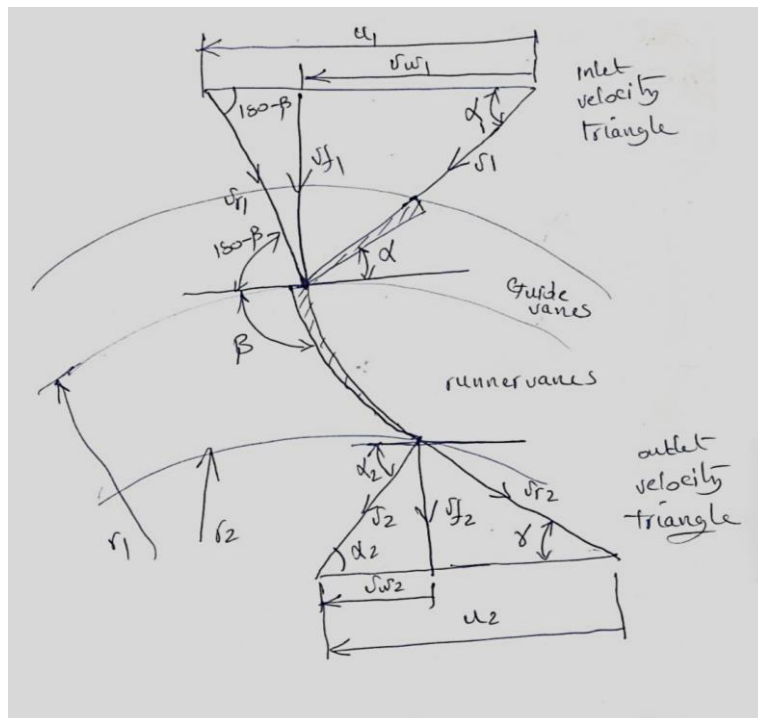 u1
vw1
inlet
velocity
triangle
180-β
α1
vf1
v1
vr1
180-β
α
Guide
vanes
β
runner vanes
outlet
velocity
triangle
α2
vr2
v2
vf2
γ
r1
r2
α2
vw2
u2